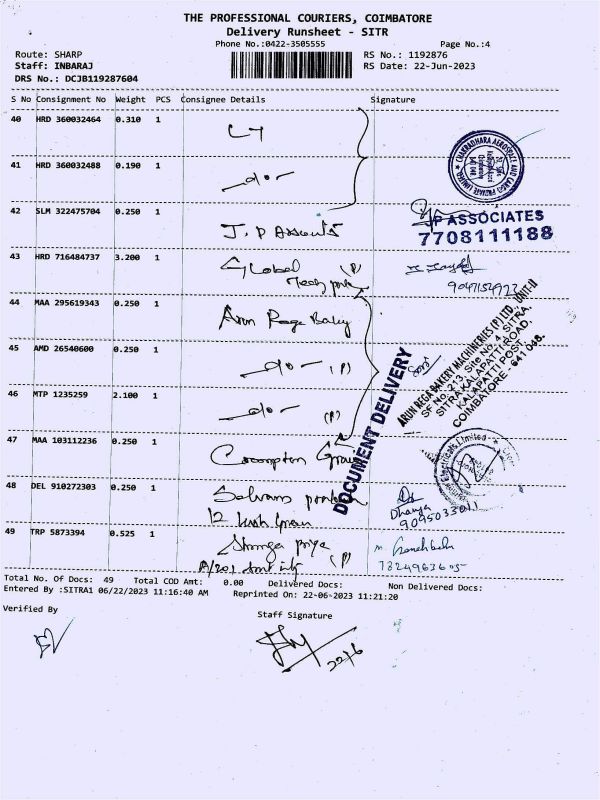 THE PROFESSIONAL COURIERS, COIMBATORE
Delivery Runsheet - SITR
Phone No.:0422-3505555
Page No.:4
Route: SHARP
RS No.: 1192876
Staff: INBARAJ
RS Date: 22-Jun-2023
DRS No.: DCJB119287604
S No Consignment No Weight PCS Consignee Details Signature
40 HRD 360032464 0.310 1
41 HRD 360032488 0.190 1
42 SLM 322475704 0.250 1 J. P
JP ASSOCIATES
7708111188
43 HRD 716484737 3.200 1 Global (P)
Tech
44 MAA 295619343 0.250 1 Arun Rega Bakery
ARUN REGA BAKERY MACHINERIES (P) LTD., UNIT-II
SF No. 213, Site No. 4, SITRA,
SITRA KALAPATTI ROAD,
KALAPATTI POST,
COIMBATORE - 641 048.
45 AMD 26540600 0.250 1 (P)
DOCUMENT DELIVERY
46 MTP 1235259 2.100 1 (P)
47 MAA 103112236 0.250 1 Crompton
48 DEL 910272303 0.250 1
Dhanya
9095033011
12
49 TRP 5873394 0.525 1 (P)
A/201
7824963605
Total No. Of Docs: 49 Total COD Amt: 0.00 Delivered Docs: Non Delivered Docs:
Entered By :SITRA1 06/22/2023 11:16:40 AM Reprinted On: 22-06-2023 11:21:20
Verified By
Staff Signature
22/6